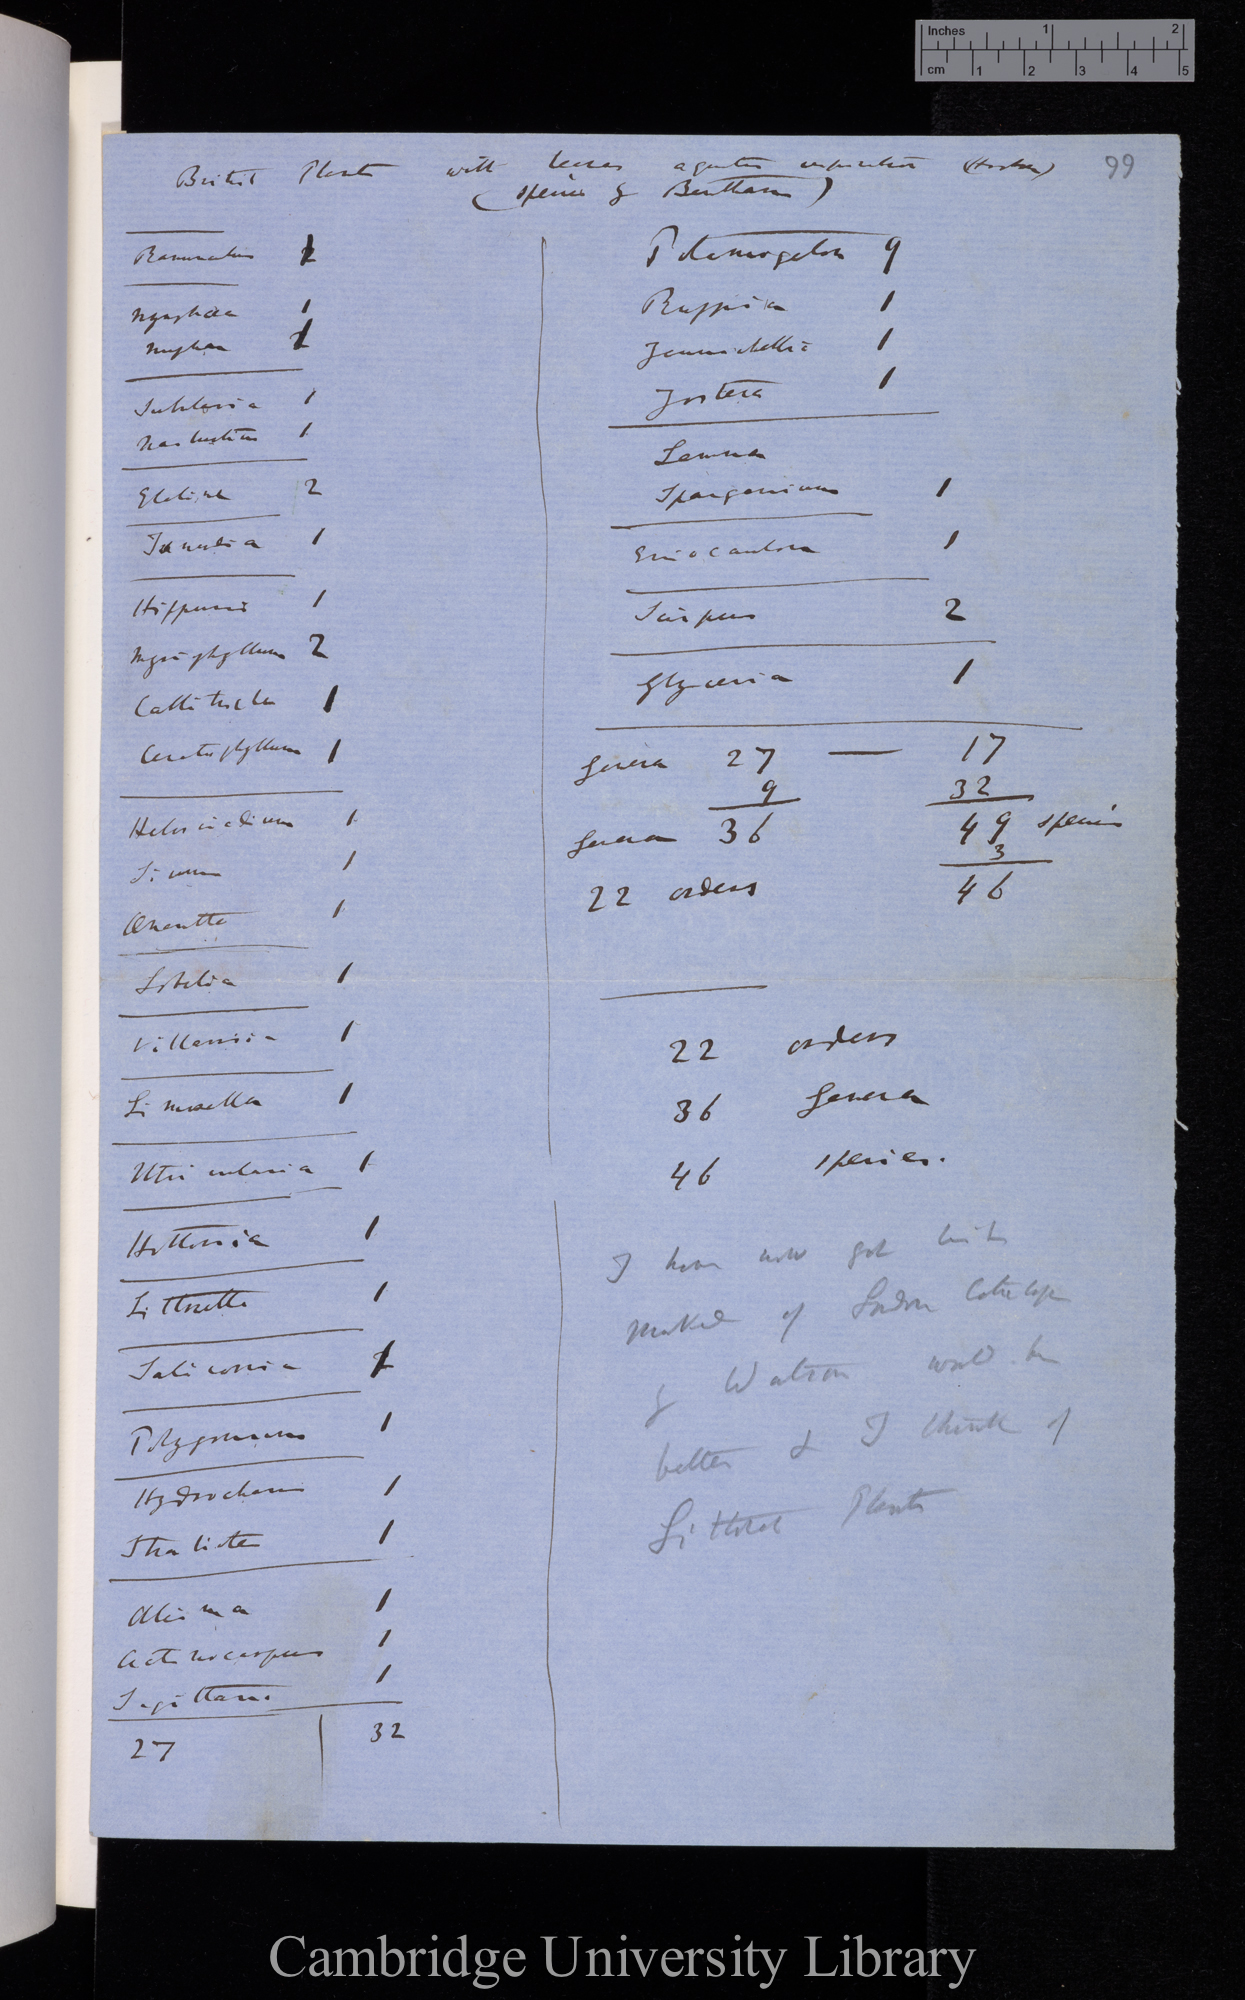 Inches 1 2
cm 1 2 3 4 5
99
British Plants with leaves aquatic (Hooker)
(species of Bentham)
Ranunculus 1
Nymphaea 1
Nuphar 1
Subularia 1
Nasturtium 1
Elatine 2
Isnardia 1
Hippuris 1
Myriophyllum 2
Callitriche 1
Ceratophyllum 1
Helosciadium 1
Sium 1
Oenanthe 1
Lobelia 1
Villarsia 1
Limosella 1
Utricularia 1
Hottonia 1
Littorella 1
Salicornia 1
Polygonum 1
Hydrocharis 1
Stratiotes 1
Alisma 1
Actinocarpus 1
Sagittaria 1
27 32
Potamogeton 9
Ruppia 1
Zannichellia 1
Zostera 1
Lemna
Sparganium 1
Eriocaulon 1
Scirpus 2
Glyceria 1
Genera 27 — 17
9 32
Genera 36 49 species
3
22 orders 46
22 orders
36 Genera
46 species.
I have now got list
marked of London Catalogue
of Watson would be
better & I think of
Littoral Plants
Cambridge University Library